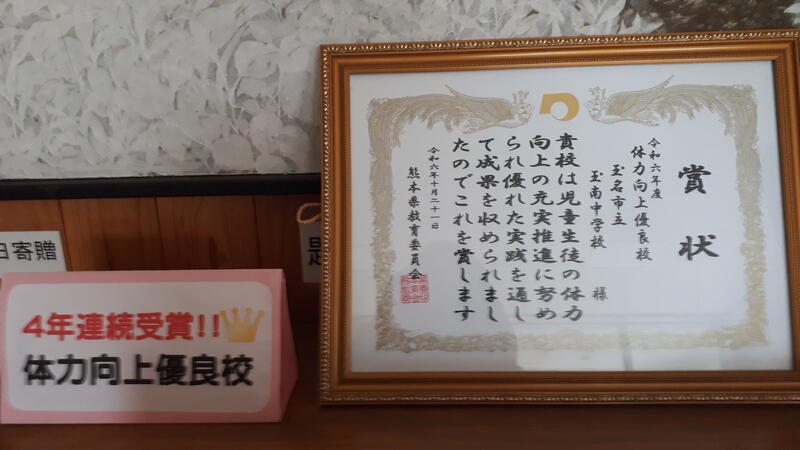 賞状
令和六年度
体力向上優良校
玉名市立
玉南中学校 様
貴校は児童生徒の体力
向上の充実推進に努め
られ優れた実践を通し
て成果を収められまし
たのでこれを賞します
令和六年十月二十一日
熊本県教育委員会
日寄贈
4年連続受賞!!
体力向上優良校